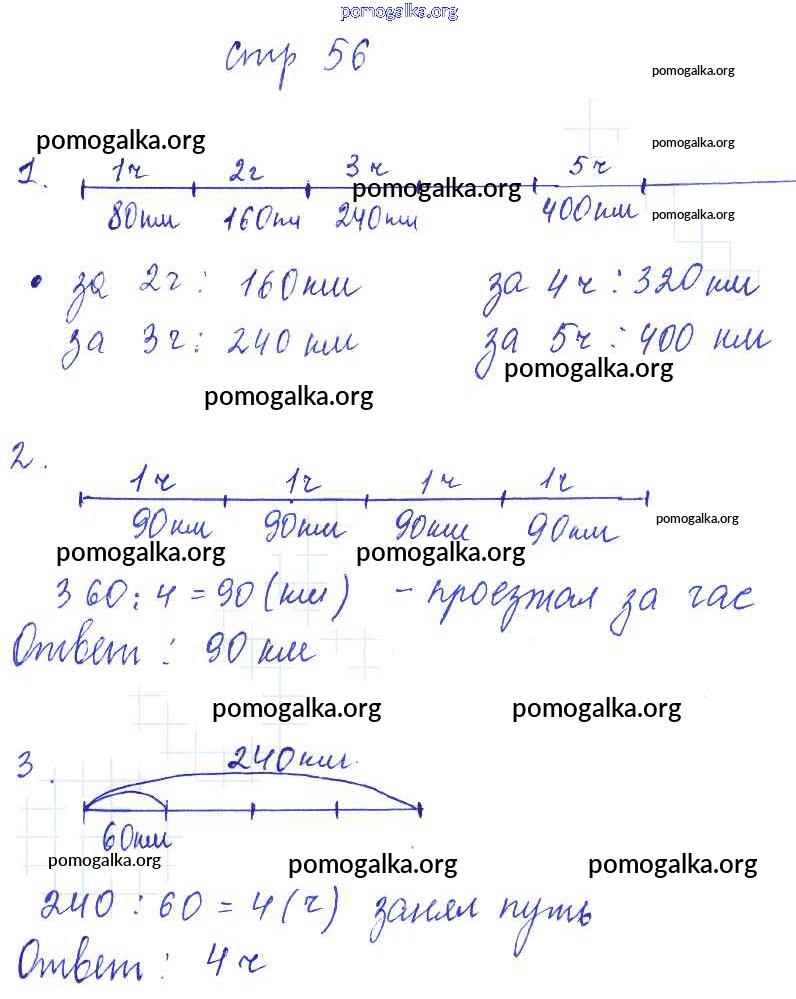 pomogalka.org
стр 56
pomogalka.org
pomogalka.org
pomogalka.org
1. 1ч 2ч 3ч 5ч
pomogalka.org
80км 160км 240км 400км
pomogalka.org
• за 2ч: 160км за 4ч: 320км
за 3ч: 240 км за 5ч: 400 км
pomogalka.org pomogalka.org
2.
1ч 1ч 1ч 1ч
90км 90км 90км 90км
pomogalka.org
pomogalka.org pomogalka.org
360:4=90(км) - проезжал за час
Ответ: 90 км
pomogalka.org pomogalka.org
3. 240км.
60км
pomogalka.org pomogalka.org pomogalka.org
240:60=4(ч) занял путь
Ответ: 4ч